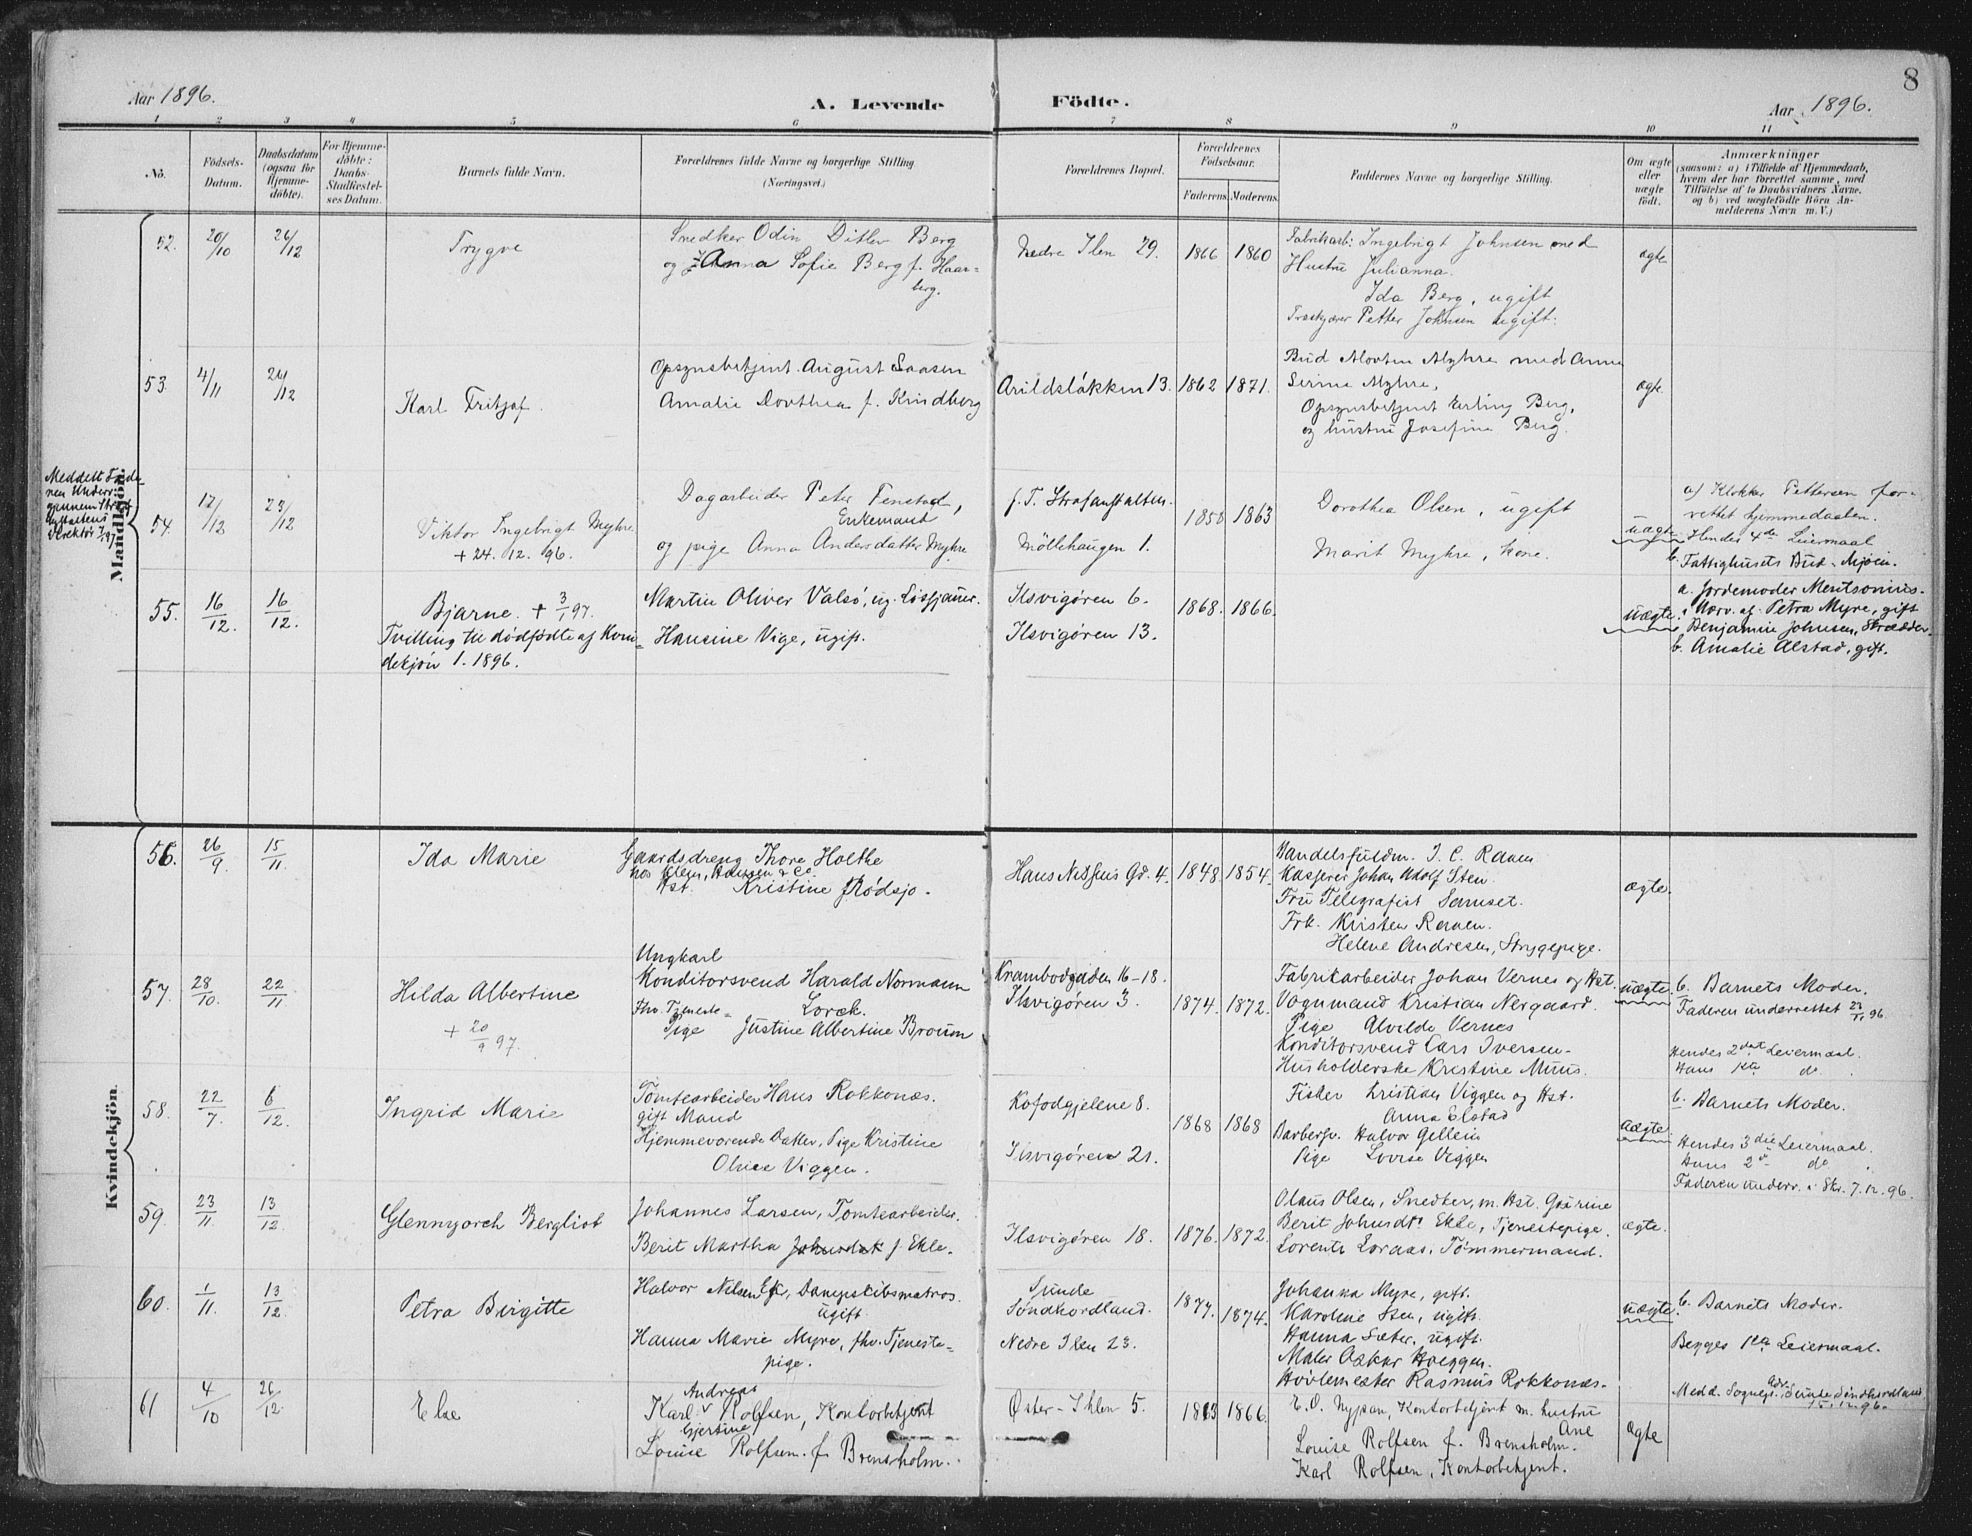 8
Aar 1896.
A. Levende Födte.
Aar 1896.
1 2 3 4 5 6 7 8 9 10 11
No.
Födsels-
Datum.
Daabsdatum
(ogsaa for
Hjemme-
döbte).
For Hjemme-
döbte:
Daabs-
Stadfæstel-
ses Datum.
Barnets fulde Navn.
Forældrenes fulde Navne og borgerlige Stilling
(Næringsvei.)
Forældrenes Bopæl.
Forældrenes
Födselsaar.
Faderens. Moderens.
Faddernes Navne og borgerlige Stilling.
Om ægte
eller
uægte
födt.
Anmærkninger
(saasom: a) i Tilfælde af Hjemmedaab,
hvem der har forrettet samme, med
Tilföielse af to Daabsvidners Navne.
og b) ved uægtefödte Börn An-
melderens Navn m. V.)
Mandkjön.
52. 20/10 26/12 Trygve
Snedker Odin Ditlev Berg
og Anna Sofie Berg f. Haar-
berg.
Nedre Ilen 29. 1866 1860
Fabrikarb: Ingebrigt Johnsen med
Hustru Julianna.
Ida Berg, ugift
Petter Johnsen ugift.
ægte
53. 4/11 26/12 Karl Fritjof.
Opsynsbetjent August Saasen
Amalie Dorthea f. Kindberg
Arildsløkken 13. 1862 1871.
Bud Morten Myhre med Anna
Serine Myhre,
Opsynsbetjent Erling Berg,
og hustru Josefine Berg.
ægte
Meddelt Fade-
ren Underr.
gjennem Straf
anstaltens
Direktør
54. 12/12 23/12 Viktor Ingebrigt Myhre
+ 24. 12. 96.
Dagarbeider Peter Fenstad,
Enkemand
og pige Anna Andersdatter Myhre
f. T. Strafanstalten.
Möllehaugen 1.
1858 1863
Dorothea Olsen, ugift
Marit Myhre, kone.
uægte
a) Klokker Pettersen for-
rettet hjemmedaaben.
Hendes 4de Leiermaal
b. Fattighusets Bud Mjøen.
55. 16/12. 16/12. Bjarne. + 3/1 97.
Tvilling til dødfødte af Kvin-
dekjön 1. 1896.
Martin Oliver Valsö, ug. Losjaur.
Hansine Vige, ugift.
Ilsvigören 6.
Ilsvigören 13.
1868. 1866.
uægte.
a. Jordemoder Mentsonius
i Nærv. af Petra Myre, gift
Benjamin Johnsen, Skrædder.
b. Amalie Alstad, gift.
Kvindekjön.
56. 26/9 15/11 Ida Marie
Gaardsdreng Thore Holthe
hos Klem, Hansen & Co.
Hst. Kristine f Rödsjo.
Hans Nissens Gd. 4. 1848. 1854.
Handelsfuldm. J. C. Raven
Kasserer Johan Adolf Sten.
Fru Telegrafist Samset.
Frk. Kirsten Raven.
Helene Andresen, Strygepige.
ægte.
57. 28/10. 22/11 Hilda Albertine
+ 20/9 97.
Ungkarl
Konditorsvend Harald Normann
Lorck.
fhv. Tjeneste-
Pige Justine Albertine Broum
Krambodgaden 16-18.
Ilsvigören 3.
1874. 1872.
Fabrikarbeider Johan Vernes og Hst.
Vognmand Kristian Nergaard.
Pige Alvilde Vernes
Konditorsvend Lars Iversen-
Husholderske Kristine Muus.
uægte
b. Barnets Moder.
Faderen underrettet 22/11 96.
Hendes 2det Leiermaal.
Hans 1ste do.
58. 22/7. 6/12. Ingrid Marie
Tomtearbeider Hans Rokkonæs.
gift Mand
Hjemmeværende Datter, Pige Kristine
Oline Viggen.
Kofodgjelene 8.
Ilsvigören 21.
1868 1868
Fisker Kristian Viggen og Hst.
Anna Elstad
Barbersv. Halvor Gellein
Pige Lovise Viggen
uægte
b. Barnets Moder.
Hendes 3die Leiermaal.
Hans 2d do.
Faderen underr. i Skr. 7.12.96.
59. 23/11 13/12. Glennyorch Bergliot
Johannes Larsen, Tomtearbeider.
Berit Martha Johnsdat f. Ekle.
Ilsvigören 18. 1876. 1872.
Olaus Olsen, Snedker, m. Hst. Gurine
Berit Johnsdt. Ekle, Tjenestepige.
Lorents Loraas, Tömmermand.
ægte.
60. 1/11. 13/12. Petra Birgitte
Halvor Nilsen Eik, Dampskibsmatros.
ugift
Hanna Marie Myre, fhv. Tjeneste-
pige.
Sunde
Söndhordland.
Nedre Ilen 23.
1877. 1874.
Johanna Myre, gift.
Karoline Sten, ugift.
Hanna Sæter, ugift.
Maler Oskar Hoeggen.
Hovlemester Rasmus Rokkonæs.
uægte
b. Barnets Moder.
Begges 1ste Leiermaal.
Medd. Sognepr. Sunde Söndhordland
61 4/10 26/12. Else
Karl Andreas Rolfsen, Kontorbetjent
Louise Gjertine Rolfsen f. Brensholm.
Øster-Ihlen 5. 1863 1866.
E. O. Nypan, Kontorbetjent m. hustru
Ane
Louise Rolfsen f. Brensholm.
Karl Rolfsen, Kontorbetjent.
ægte